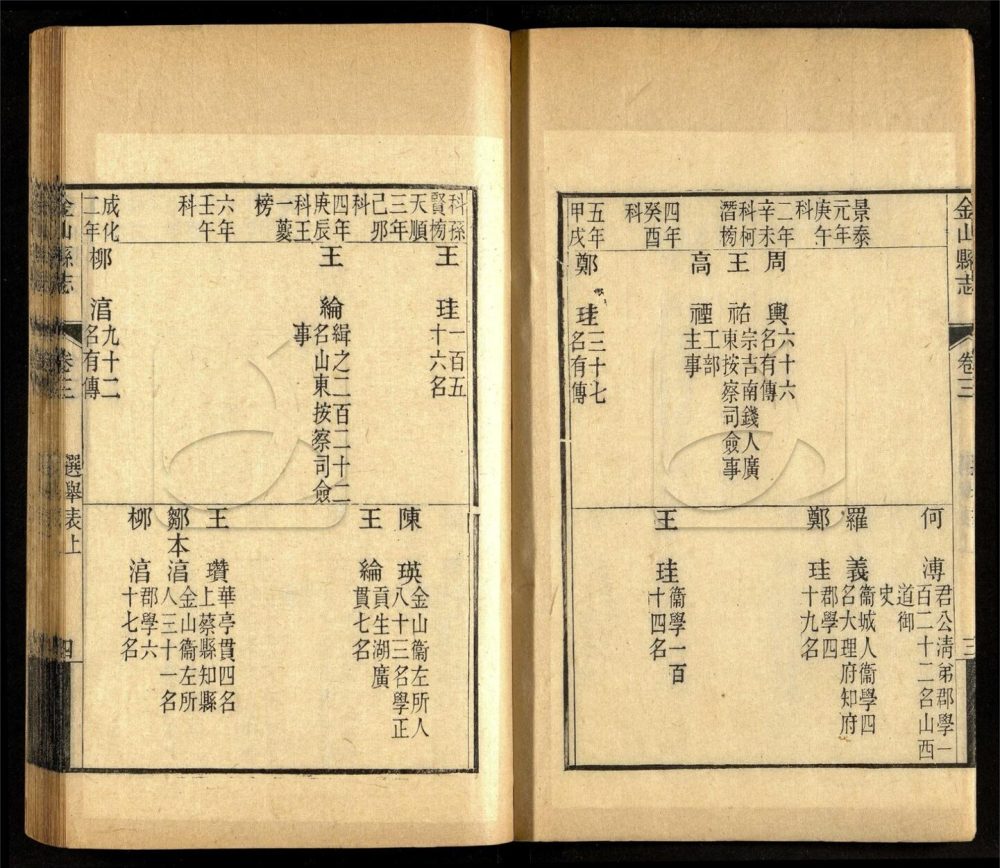 金山縣志
卷三
三
景泰
元年
庚午
科
二年
辛未
科柯
潛榜
四年
癸酉
科
五年
甲戌
周輿
六十六
名有傳
王祐
宗吉南錢人廣
東按察司僉事
高禋
工部
主事
鄭珪
三十七
名有傳
何溥
君公清弟郡學一
百二十二名山西
道御
史
羅義
衞城人衞學四
名大理府知府
鄭珪
郡學四
十九名
王珪
衞學一百
十四名
科孫
賢榜
天順
三年
己卯
科
四年
庚辰
科王
一夔
榜
六年
壬午
科
成化
二年
王珪
一百五
十六名
王綸
緝之二百二十二
名山東按察司僉
事
柳涫
九十二
名有傳
陳瑛
金山衞左所人
八十三名學正
王綸
貢生湖廣
貫七名
王瓚
華亭貫四名
上蔡縣知縣
鄒本涫
金山衞左所
人三十一名
柳涫
郡學六
十七名
金山縣志
卷三
選舉表上
四